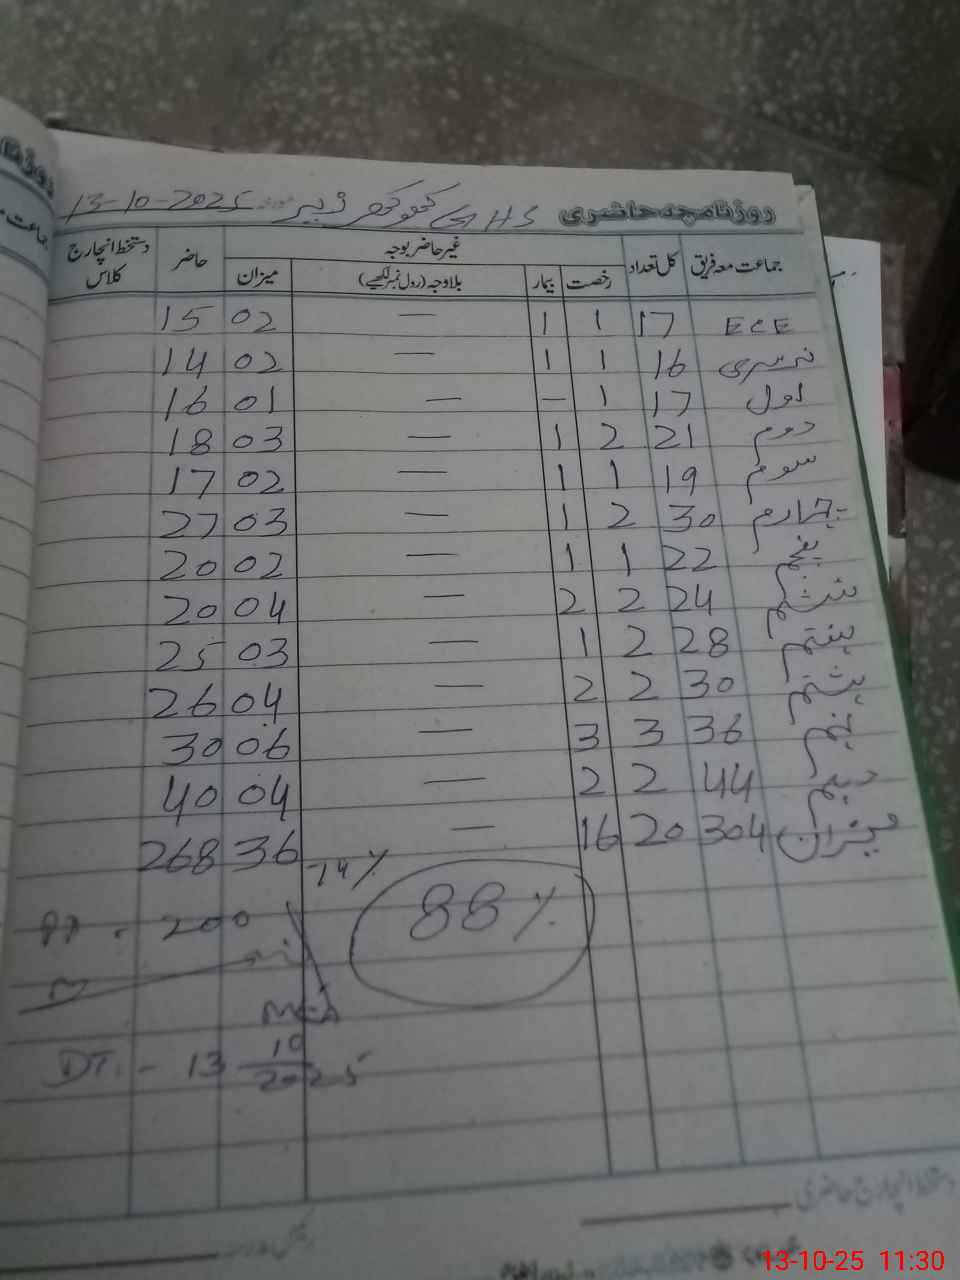 روزنامچہ حاضری GHS مورخہ 13-10-2025
جماعت معہ فریق کل تعداد غیر حاضر بوجہ حاضر دستخط انچارج کلاس
رخصت بیمار بلاوجہ (رول نمبر لکھیے) میزان
ECE 17 1 1 — 02 15
نرسری 16 1 1 — 02 14
اول 17 1 — — 01 16
دوم 21 2 1 — 03 18
سوم 19 1 1 — 02 17
چہارم 30 2 1 — 03 27
پنجم 22 1 1 — 02 20
ششم 24 2 2 — 04 20
ہفتم 28 2 1 — 03 25
ہشتم 30 2 2 — 04 26
نہم 36 3 3 — 06 30
دہم 44 2 2 — 04 40
میزان 304 20 16 — 36 268
74%
88%
200
DT. - 13 10 2025
دستخط انچارج حاضری
13-10-25 11:30